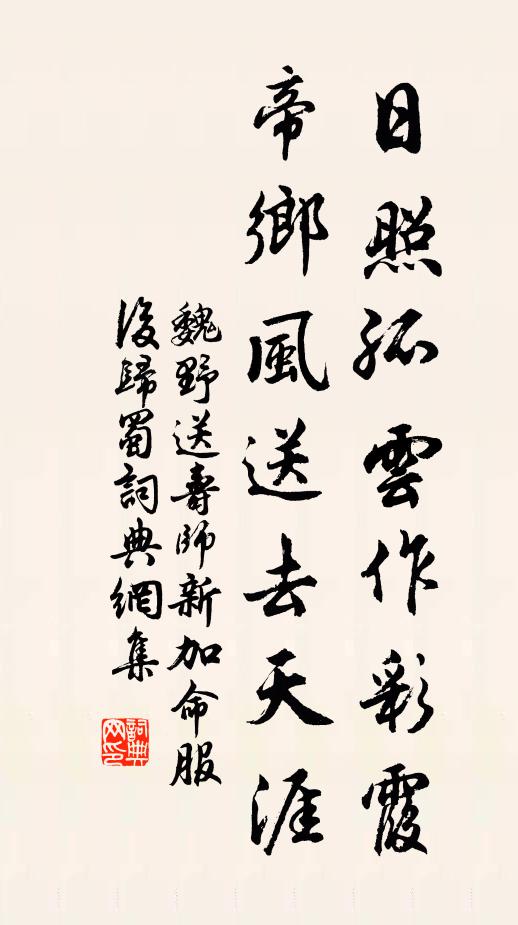 日照孤雲作彩霞
帝鄉風送去天涯
魏野送壽師新加命服
後歸蜀詞典網集
詞典網印